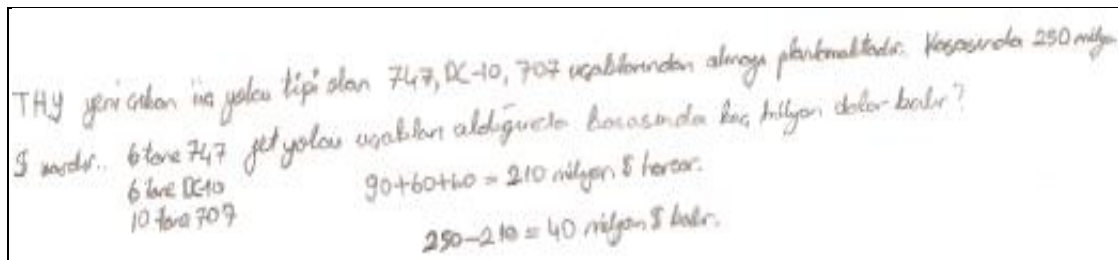 THY yeni çıkan üç yolcu tipi olan 747, DC-10, 707 uçaklarından almayı planlamaktadır. Kasasında 250 milyon
$ vardır.. 6 tane 747 jet yolcu uçakları aldığında kasasında kaç milyon dolar kalır?
6 tane DC10
10 tane 707
90+60+60 = 210 milyon $ harcar.
250-210 = 40 milyon $ kalır.